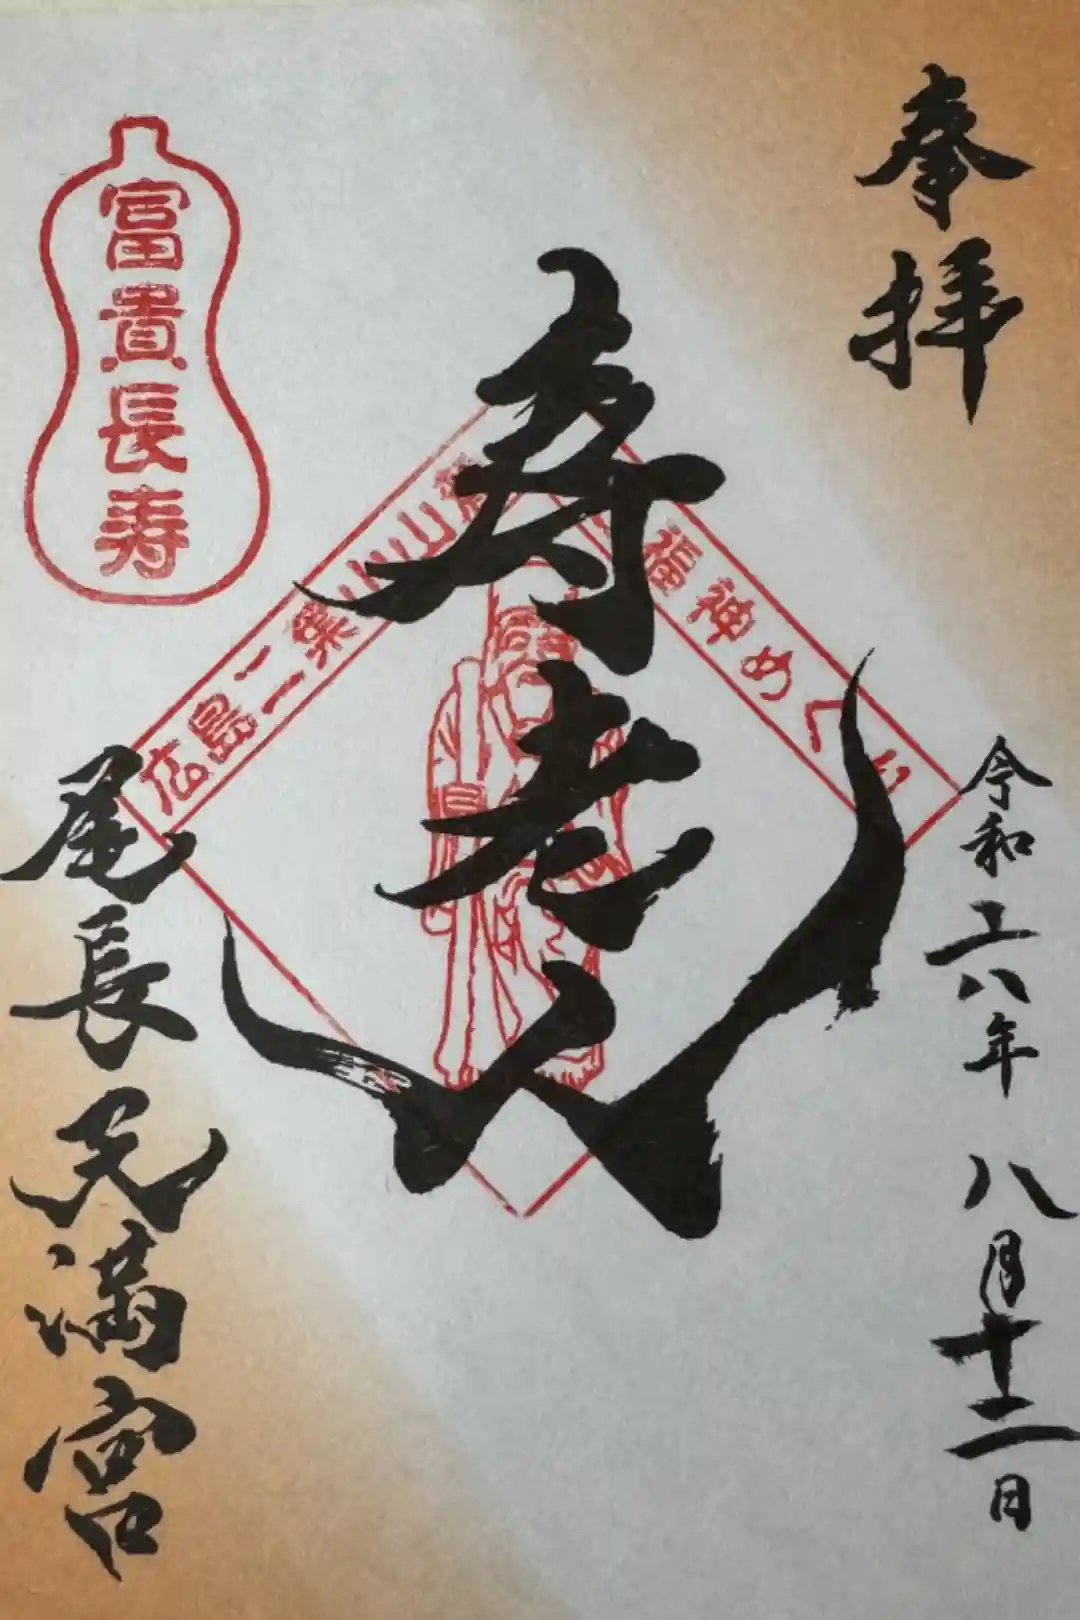 奉拝
令和六年 八月十二日
寿老人
福神めぐり
広島二葉山山麓
富貴長寿
尾長天満宮